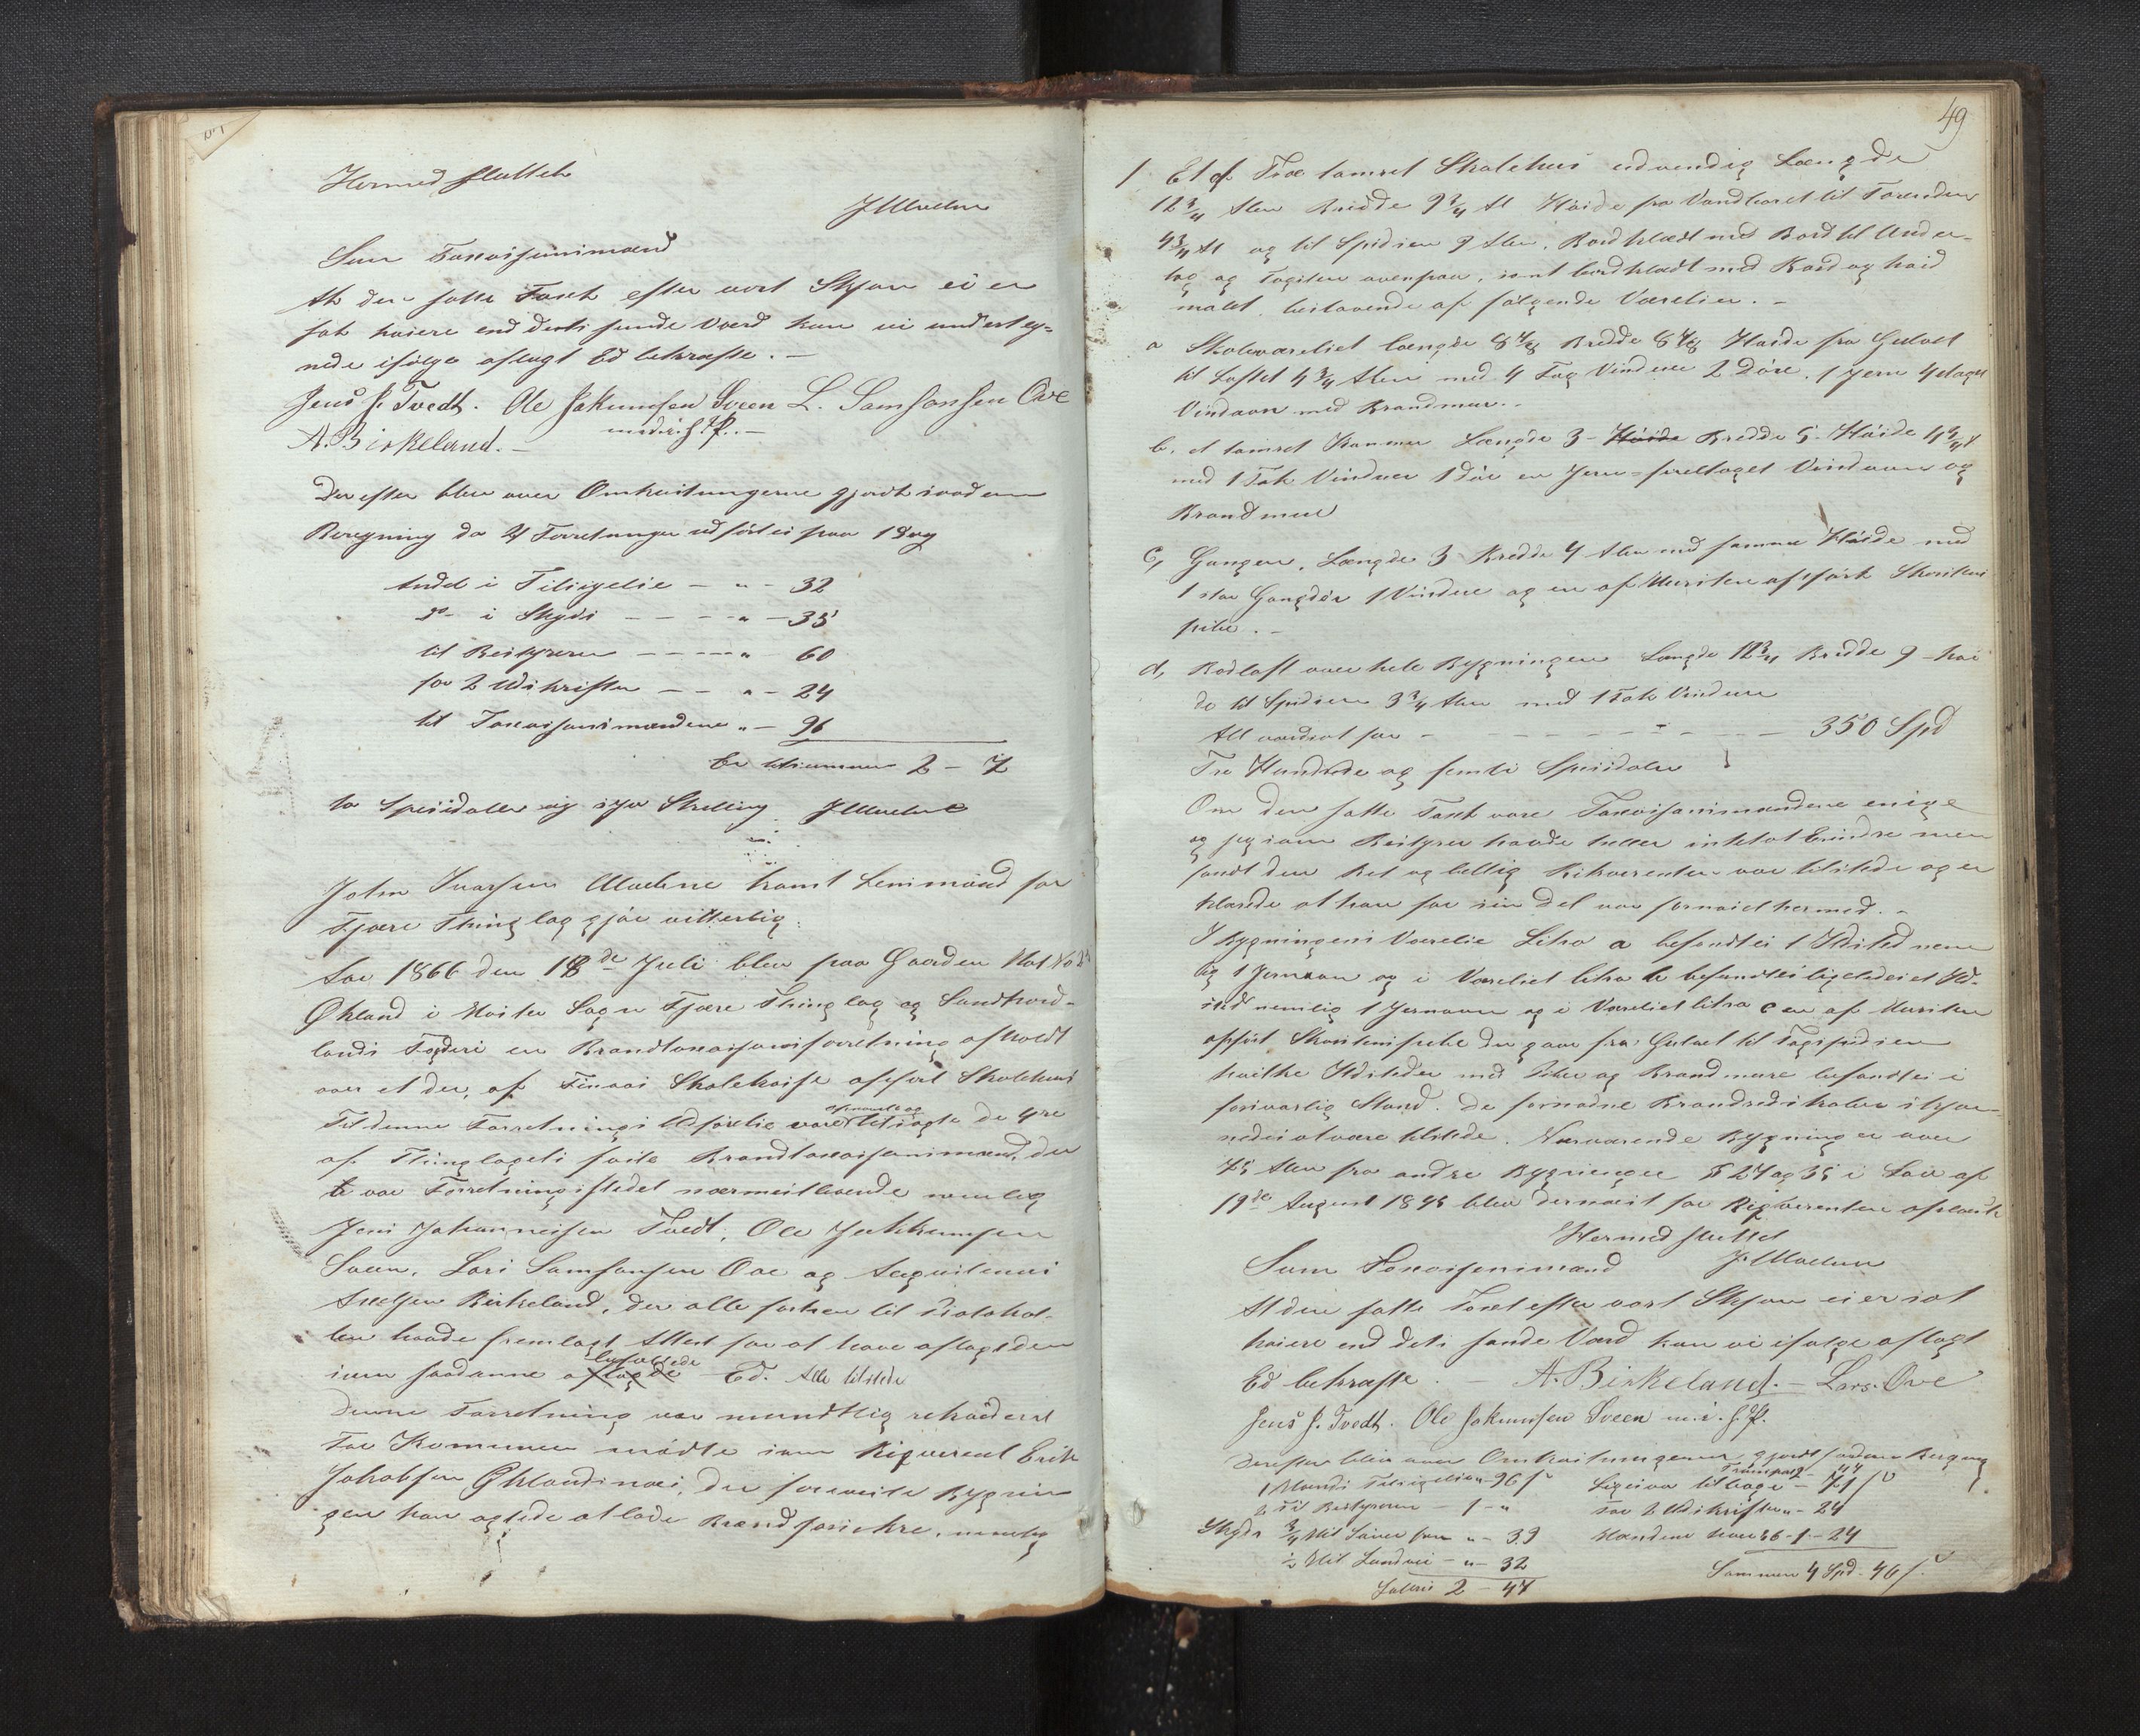 Hermed sluttet
JMæhre
Som Taxasjonsmænd
At den satte Taxt efter vort Skjøn ei er
sat høiere end dens sande Værd kan vi underteg-
nede ifølge aflagt Ed bekræfte. -
Jens J. Tvedt. Ole Jakumsen Sveen L. Samsonsen Ove
m.i.f.P. -
A. Birkeland. -
Derefter blev over Omkostningerne gjordt saadan
Beregning da 4 Forretninger udførtes paa 1 Dag
Andel i Tilsigelse - " - 32
do - i Skyds - - - " - 35
til Bestyreren - - - " 60
for 2 Udskrifter - - " - 24
til Taxasjonsmændene " - 96
Er tilsammen 2 - 7
to Speсidaler og syv Skilling JMæhre
John Ivarsen Mæhre konst Lensmand for
Fjære Thinglag gjør vitterlig:
Aar 1866 den 18de Juli blev paa Gaarden Mat No
Økland i Sogn Fjære Thinglag og Sundhord-
lands Fogderi en Brandtaxasjonsforretning afholdt
over et der, af Finaas Skolekasse opført Skolehus
Til denne Forretnings Udførelse vare tilsagte de 4re
af Thinglagets faste Brandtaxasjonsmænd, der
te var Forretningsstedet nærmest boende nemlig
Jens Johannesen Tvedt, Ole Jakkumsen
Sveen, Lars Samsonsen Ove og Augustinus
Axelsen Birkeland, der alle forhen til Protokol-
len havde fremlagt Attest for at have aflagt den
som saadanne aflagde befalede Ed. Alle tilstede
Denne Forretning var mundtlig rekvireret
For Kommunen mødte som Riqverent Erik
Jakobsen Øklandsnæs, der foreviste Bygnin
gen han agtede at lade Brandforsikre, nemlig
49
1 Et af Træ tømret Skolehus udvendig Længde
12 3/4 Alen Bredde 9 3/4 Al Høide fra Vandbordet til Tømenden
4 3/4 Al og til Spidsen 9 Alen, Bordklædt med Bord til Under-
lag og Tagsten ovenpaa, samt bordklædt med Bord og hvid
malet, bestaaende af følgende Værelser. -
a Skoleværelset Længde 8 1/2 Bredde 8 Høide fra Gulvet
til Loftet 4 3/4 Alen med 4 Fag Vinduer 2 Døre, 1 Jern 4 etages
Vindovn med Brandmur. -
b, et tømret Kammer Længde 3 - Høide Bredde 5 - Høide 4 3/4
med 1 Fak Vinduer 1 Dør en Jern= Vindovn og
Brandmur
c, Gangen, Længde 3 Bredde 4 Alen med samme Høide med
1 stor Gangdør 1 Vindue og en af Mursten opført Skorstens
pibe. -
d, Rodloft over hele Bygningen Længde 12 3/4 Bredde 9 - høi
de til Spidsen 3 3/4 Alen med 1 Fak Vinduer
Alt værdsat for - - - - - - - - 350 Spd
Tre Hundrede og femti Spesidaler
Om den satte Taxt vare Taxasjonsmændene enige
og jeg som Bestyrer havde heller intet at Erindre men
fandt den Ret og billig Rikverenten var tilstede og er
klærede at han for sin Del var fornøiet hermed. -
I Bygningens Værelse Litra a befandtes 1 Ildsted nem
lig 1 Jernovn og i Værelset litra b befandtes ligeledes et Ild-
sted nemlig 1 Jernovn og i Værelset litra c en af Mursten
opført Skorstenspibe der gaar fra Gulvet til Tagspidsen
hvilke Ildsteder med Piber og Brandmure befandtes i
forsvarlig Stand. De fornødne Brandredskaber skjøn-
nedes at være tilstede. Nærværende Bygning er over
75 Alen fra andre Bygninger § 27 og 35 i Lov af
19de August 1845 blev dernæst for Riqverenten oplæst
Hermed sluttet
JMæhre
Som Taxasjonsmænd
At den satte Taxt efter vort Skjøn ei er sat
høiere end dets sande Værd kan vi ifølge aflagt
Ed bekræfte. - A. Birkeland. - Lars. Ove
Jens J. Tvedt. Ole Jakumsen Sveen m.i.f.P.
Derefter blev over Omkostningerne gjordt saadan Beregning
1 Mands Tilsigelse - 96 s Transport 2 - 47
2 til Bestyreren - 1 - " Ligesaa tilbage - 71 s
Skyds 3/4 Mil Søvei frem " - 39 for 2 Udskrifter - 24
1/2 Mil Landvei - " - 32 Mændene hver 36 - 1 - 24
Lateris 2 - 47 Sammen 4 Spd - 46 s